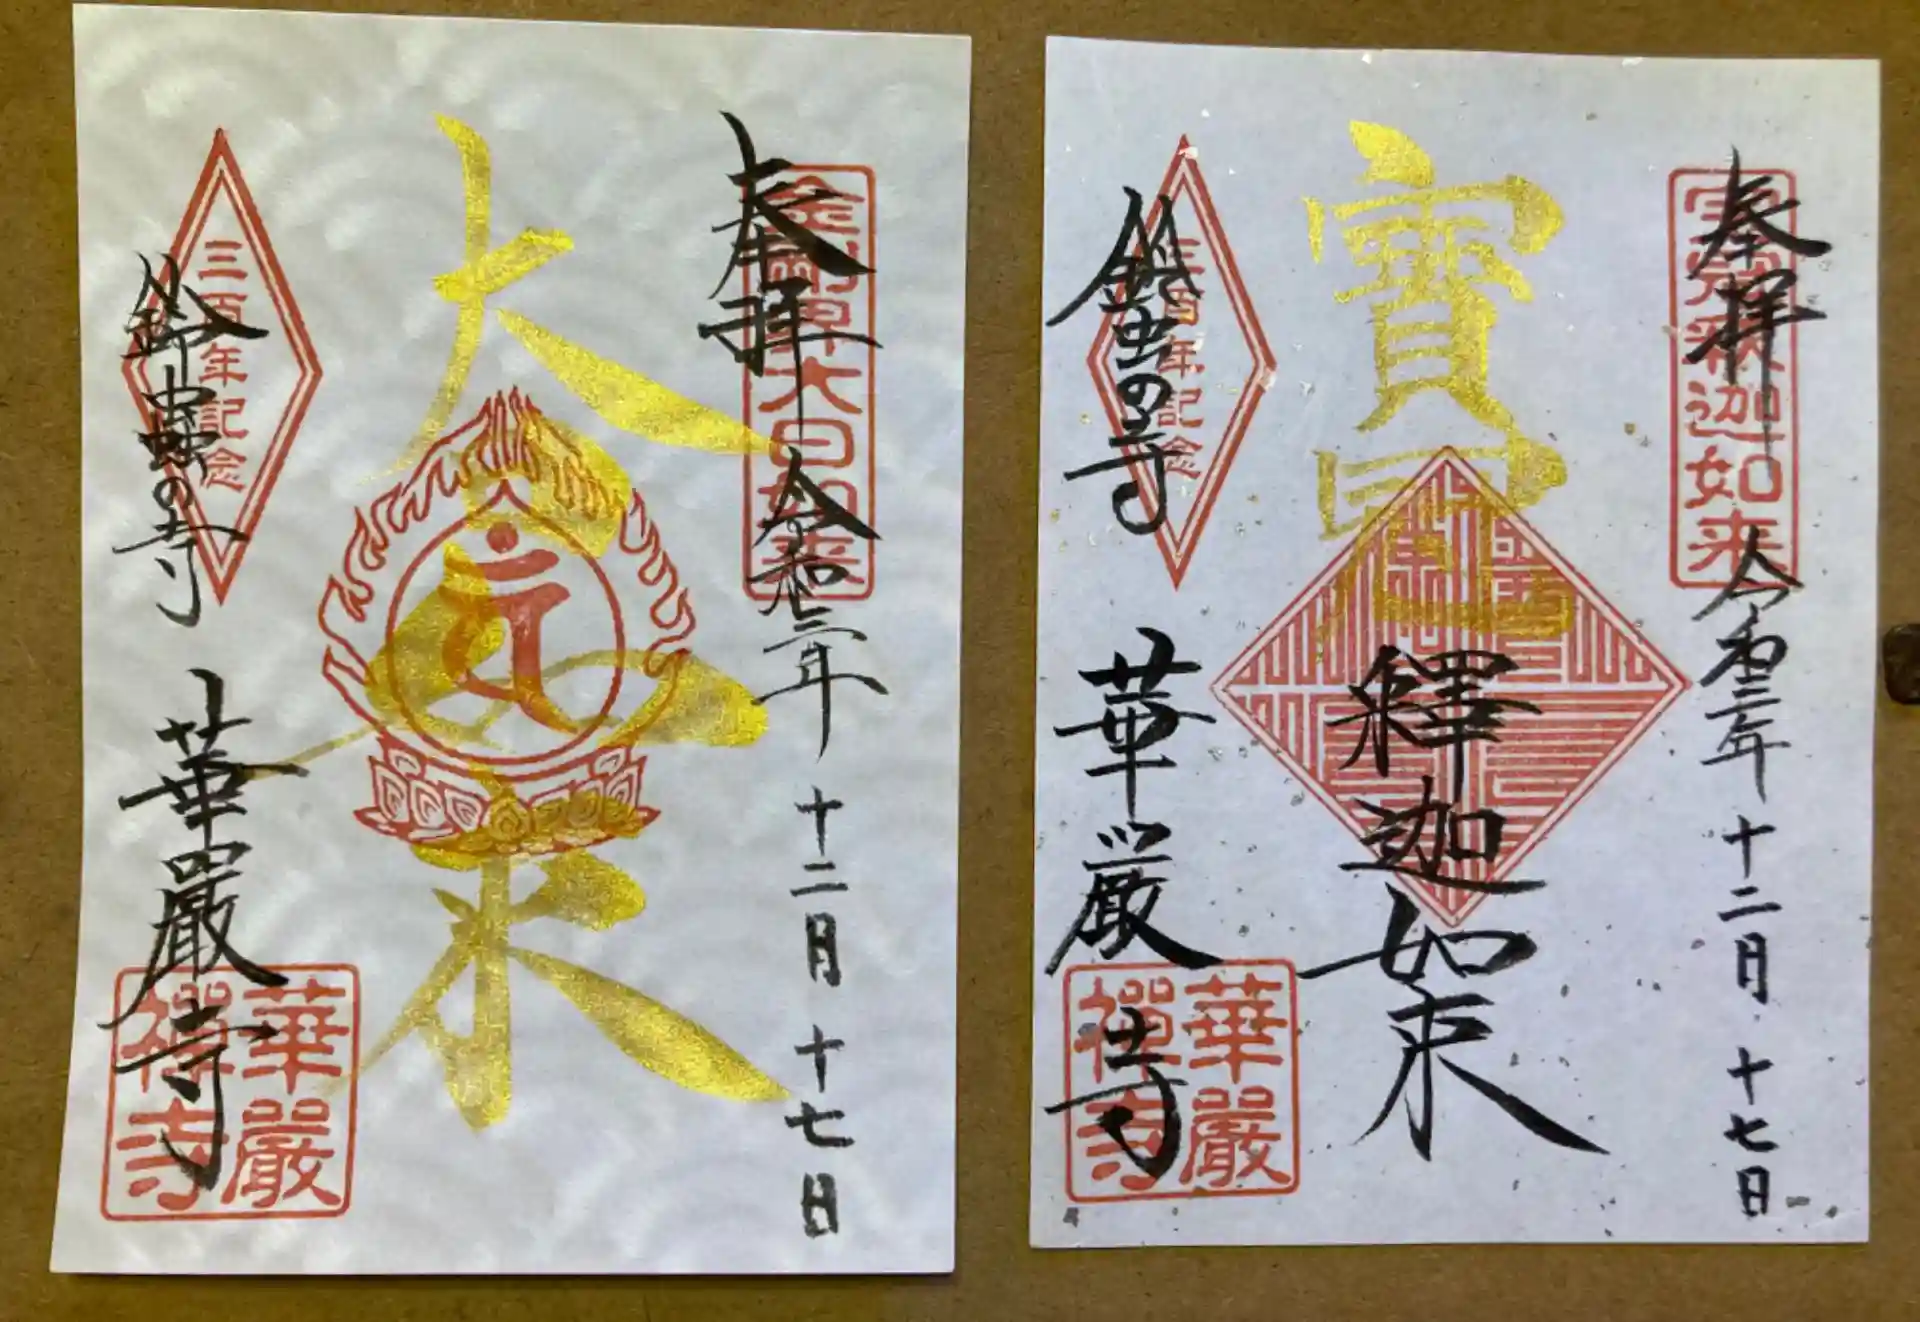 奉拝
金剛界大日如来
令和三年 十二月 十七日
大日如来
三百年記念
鈴蟲の寺
華嚴寺
華嚴
禪寺
奉拝
宝冠釈迦如来
令和三年 十二月 十七日
寶冠
釋迦如来
三百年記念
鈴虫の寺
華厳寺
華嚴
禪寺